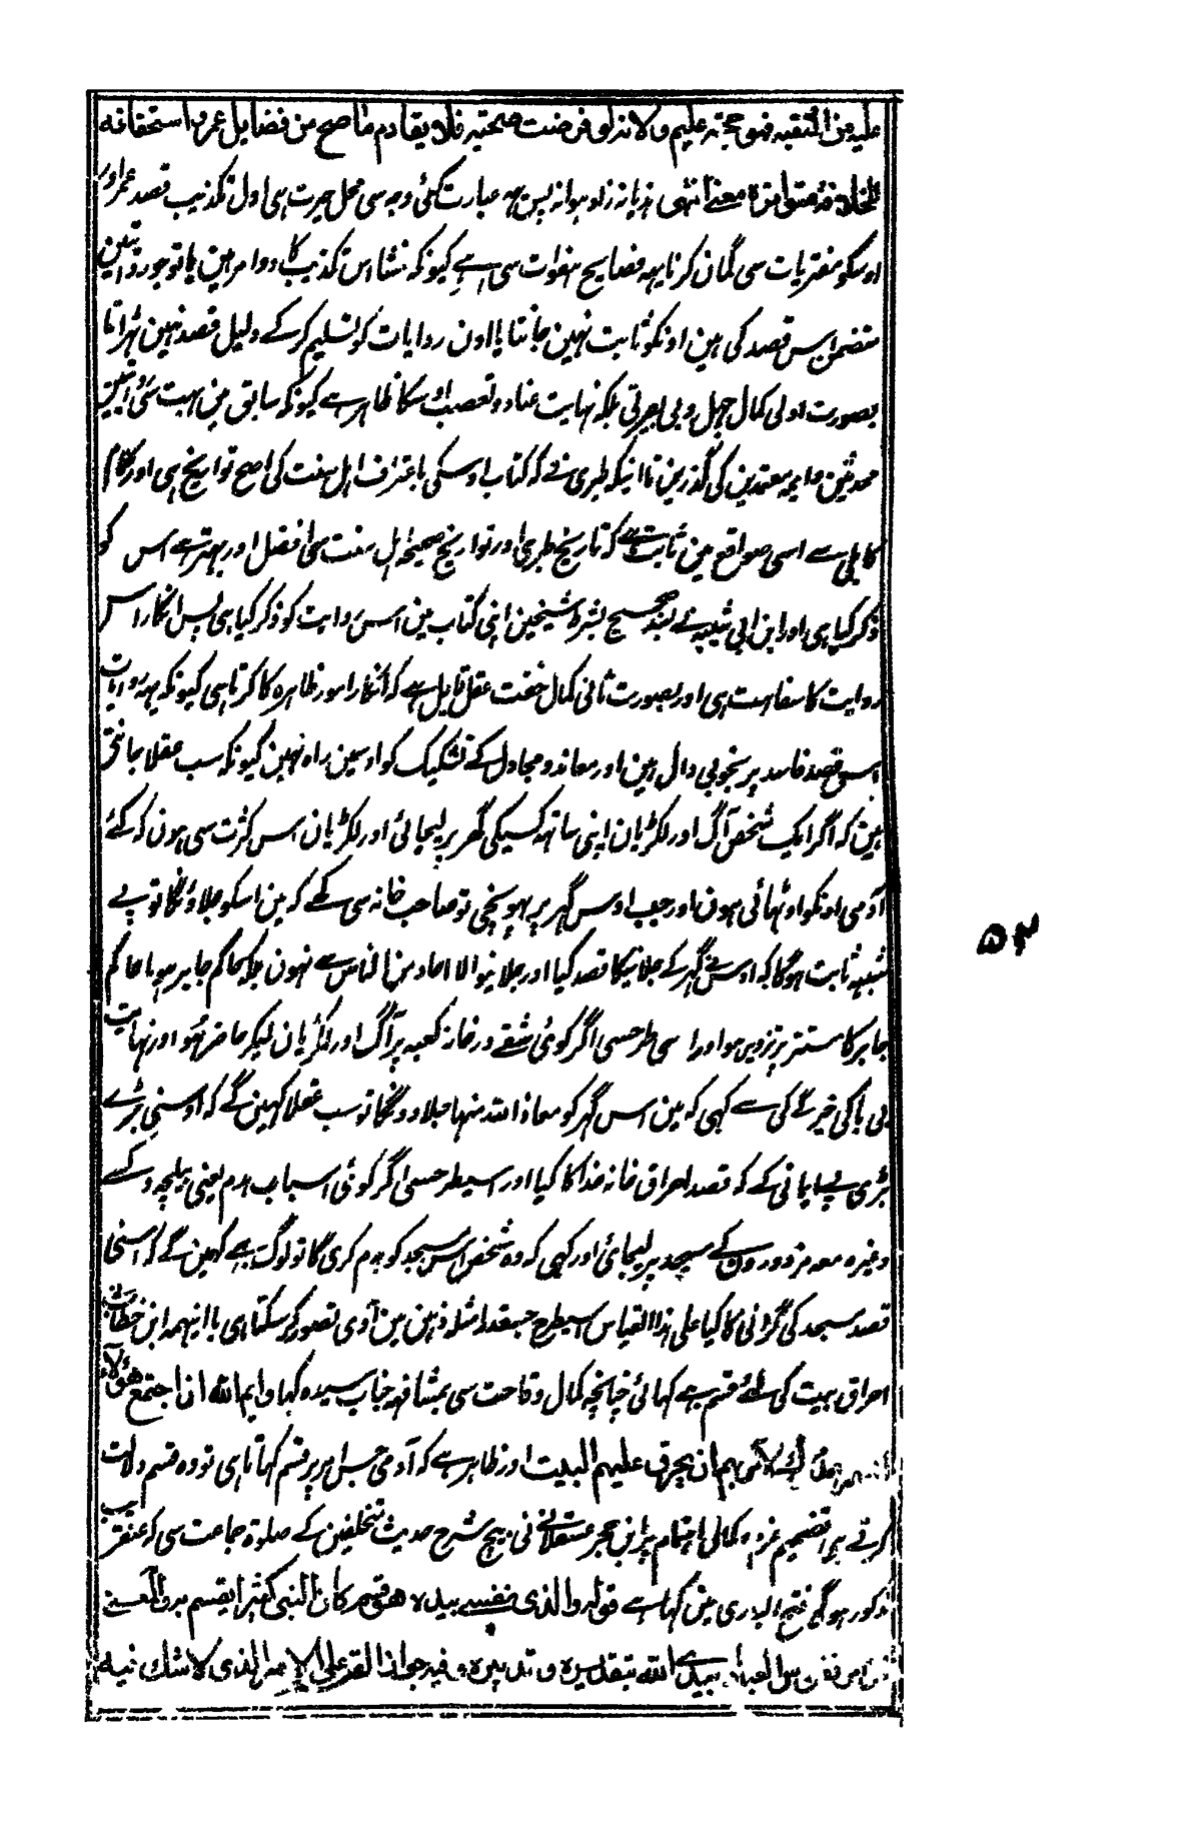 علیہ من التقیہ فہو حجتہ علیہم ولانہ لو فرضت صحتہ فلا یقادم ما صح من فضایل عمر و استحقاقہ
للخلافہ متواترۃ معنے انتہی ہذیانہ زاد ہوانہ پس یہہ عبارت کئی وجہ سی محل حیرت ہی اول تکذیب قصد عمر اور
اوسکو مفتریات سی گمان کرنا یہہ فضایح ہفوات سی ہے کیونکہ منشا اس تکذیب کا دو امر ہین یا تو جو روایتین
متضمن اس قصد کی ہین اونکو ثابت نہین جانتا یا اون روایات کو تسلیم کر کے دلیل قصد نہین ٹہراتا
بصورت اولی کمال جہل و بی بصیرتی بلکہ نہایت عناد و تعصب اوسکا ظاہر ہے کیونکہ سابق مین بہت سی روایتین
محدثین و ایمہ معتمدین کی گذرین تا اینکہ طبری نے کہ کتاب اوسکی باعتراف اہل سنت کی اصح تواریخ ہی اور کلام
کابلی سے اسی صواقع مین ثابت ہے کہ تاریخ طبری اور تواریخ صحیحہ اہل سنت سی افضل اور بہتر ہے اس کو
ذکر کیا ہی اور ابن ابی شیبہ نے بسند صحیح بشرط شیخین اپنی کتاب مین اس روایت کو ذکر کیا ہی پس انکار اس
روایت کا سفاہت ہی اور بصورت ثانی کمال خفت عقل قایل ہے کہ انکار امور ظاہرہ کا کرتا ہی کیونکہ یہہ روایات
اس قصد فاسد پر بخوبی دال ہین اور معاند و مجادل کے تشکیک کو اوسمین راہ نہین کیونکہ سب عقلا جانتی
ہین کہ اگر ایک شخص آگ اور لکڑیان اپنی ساتہہ کسیکی گہر پر لیجائی اور لکڑیان اس کثرت سی ہون کہ کئے
آدمی اونکو اوٹہائی ہون اور جب اوس گہر پر پہونچی تو صاحب خانہ سی کہے کہ مین اسکو جلاؤنگا تو بے
شبہہ ثابت ہوگا کہ اوس نے گہر کے جلانیکا قصد کیا اور جلانیوالا احاد من الناس سے نہون بلکہ حاکم جابر ہو یا حاکم
جابر کا مستتر بتزویر ہو اور اسی طرحسی اگر کوئی شقے در خانہ کعبہ پر آگ اور لکڑیان لیکر حاضر ہو اور نہایت
بی باکی خیرگی سے کہی کہ مین اس گہر کو معاذ اللہ منہا جلا دونگا تو سب عقلا کہین گے کہ اوسنی بڑے
بڑی بے ایمانی کے کہ قصد احراق خانہ خدا کا کیا اور اسیطرحسی اگر کوئی اسباب ہدم یعنی بیلچہ و کسے
وغیرہ معہ مزدورون کے مسجد پر لیجائی اور کہی کہ وہ شخص اس مسجد کو ہدم کری گا تو لوگ یہے کہین گے کہ اسنی
قصد مسجد کی گرانی کا کیا علی ہذا القیاس اسیطرح جسقدر امثلہ ذہن مین آدمی تصور کر سکتا ہی با اینہمہ ابن خطاب نے
احراق بیت کی لئے قسم بہے کہائی چنانچہ کمال وقاحت سی بمشافہہ جناب سیدہ کہا و ایم اللہ ان اجتمع ہؤلاء
عندک لآمر بہم ان یحرق علیہم البیت اور ظاہر ہے کہ آدمی جس امر پر قسم کہاتا ہی تو وہ قسم دلالت
کرتے ہی تصمیم عزم و کمال اہتمام پر ابن حجر عسقلانے نی بیچ شرح حدیث متخلفین کے صلوۃ جماعت سی کہ عنقریب
مذکور ہوگی فتح الباری مین کہا ہے قولہ والذی نفسے بیدہ ہو قسم کان النبی کثیرا یقسم بہ والمعنے
ان امر نفوس العباد بیدے اللہ بتقدیرہ و تدبیرہ و فیہ جواز القسم علی الامر الذی لا شک فیہ
۵۳